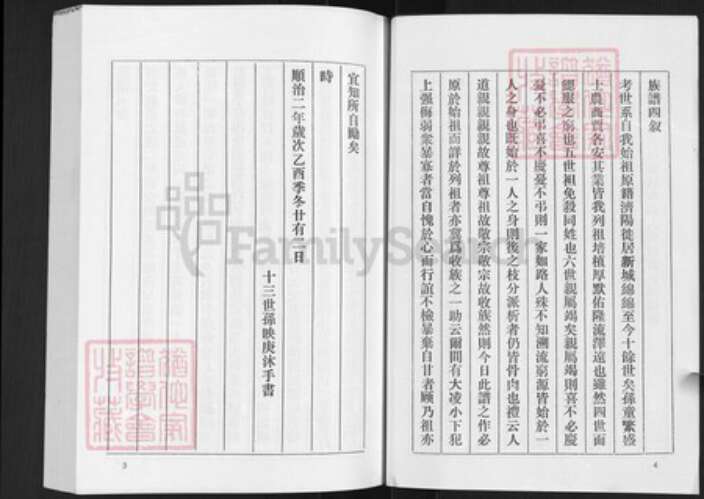 族譜四叙
考世系自我始祖原籍濟陽徙居新城綿綿至今十餘世矣孫童繁盛
士農商賈各安其業皆我列祖培植厚默佑隆流澤遠也雖然四世而
緦服之窮也五世袒免殺同姓也六世親屬竭矣親屬竭則喜不必慶
憂不必弔喜不慶憂不弔則一家如路人殊不知溯流窮源皆始於一
人之身也既始於一人之身則後之枝分派析者仍皆骨肉也禮云人
道親親親親故尊祖尊祖故敬宗敬宗故收族然則今日此譜之作必
原於始祖而詳於列祖者亦冀爲收族之一助云爾間有大凌小下犯
上强侮弱衆暴寡者當自愧於心而行誼不檢暴棄自甘者顧乃祖亦
4
宜知所自勵矣
時
順治二年歲次乙酉季冬廿有二日
十三世孫映庚沐手書
3
FamilySearch